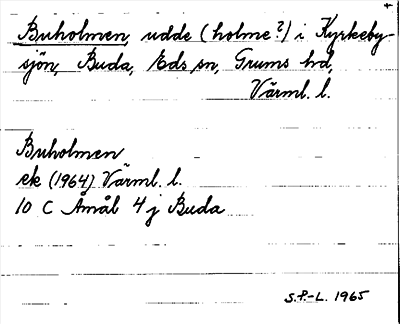 Buholmen, udde (holme?) i Kyrkeby-
sjön, Buda, Eds sn, Grums hd,
Värml. l.
Buholmen
ek (1964) Värml. l.
10 C Åmål 4 j Buda
S.P.-L. 1965